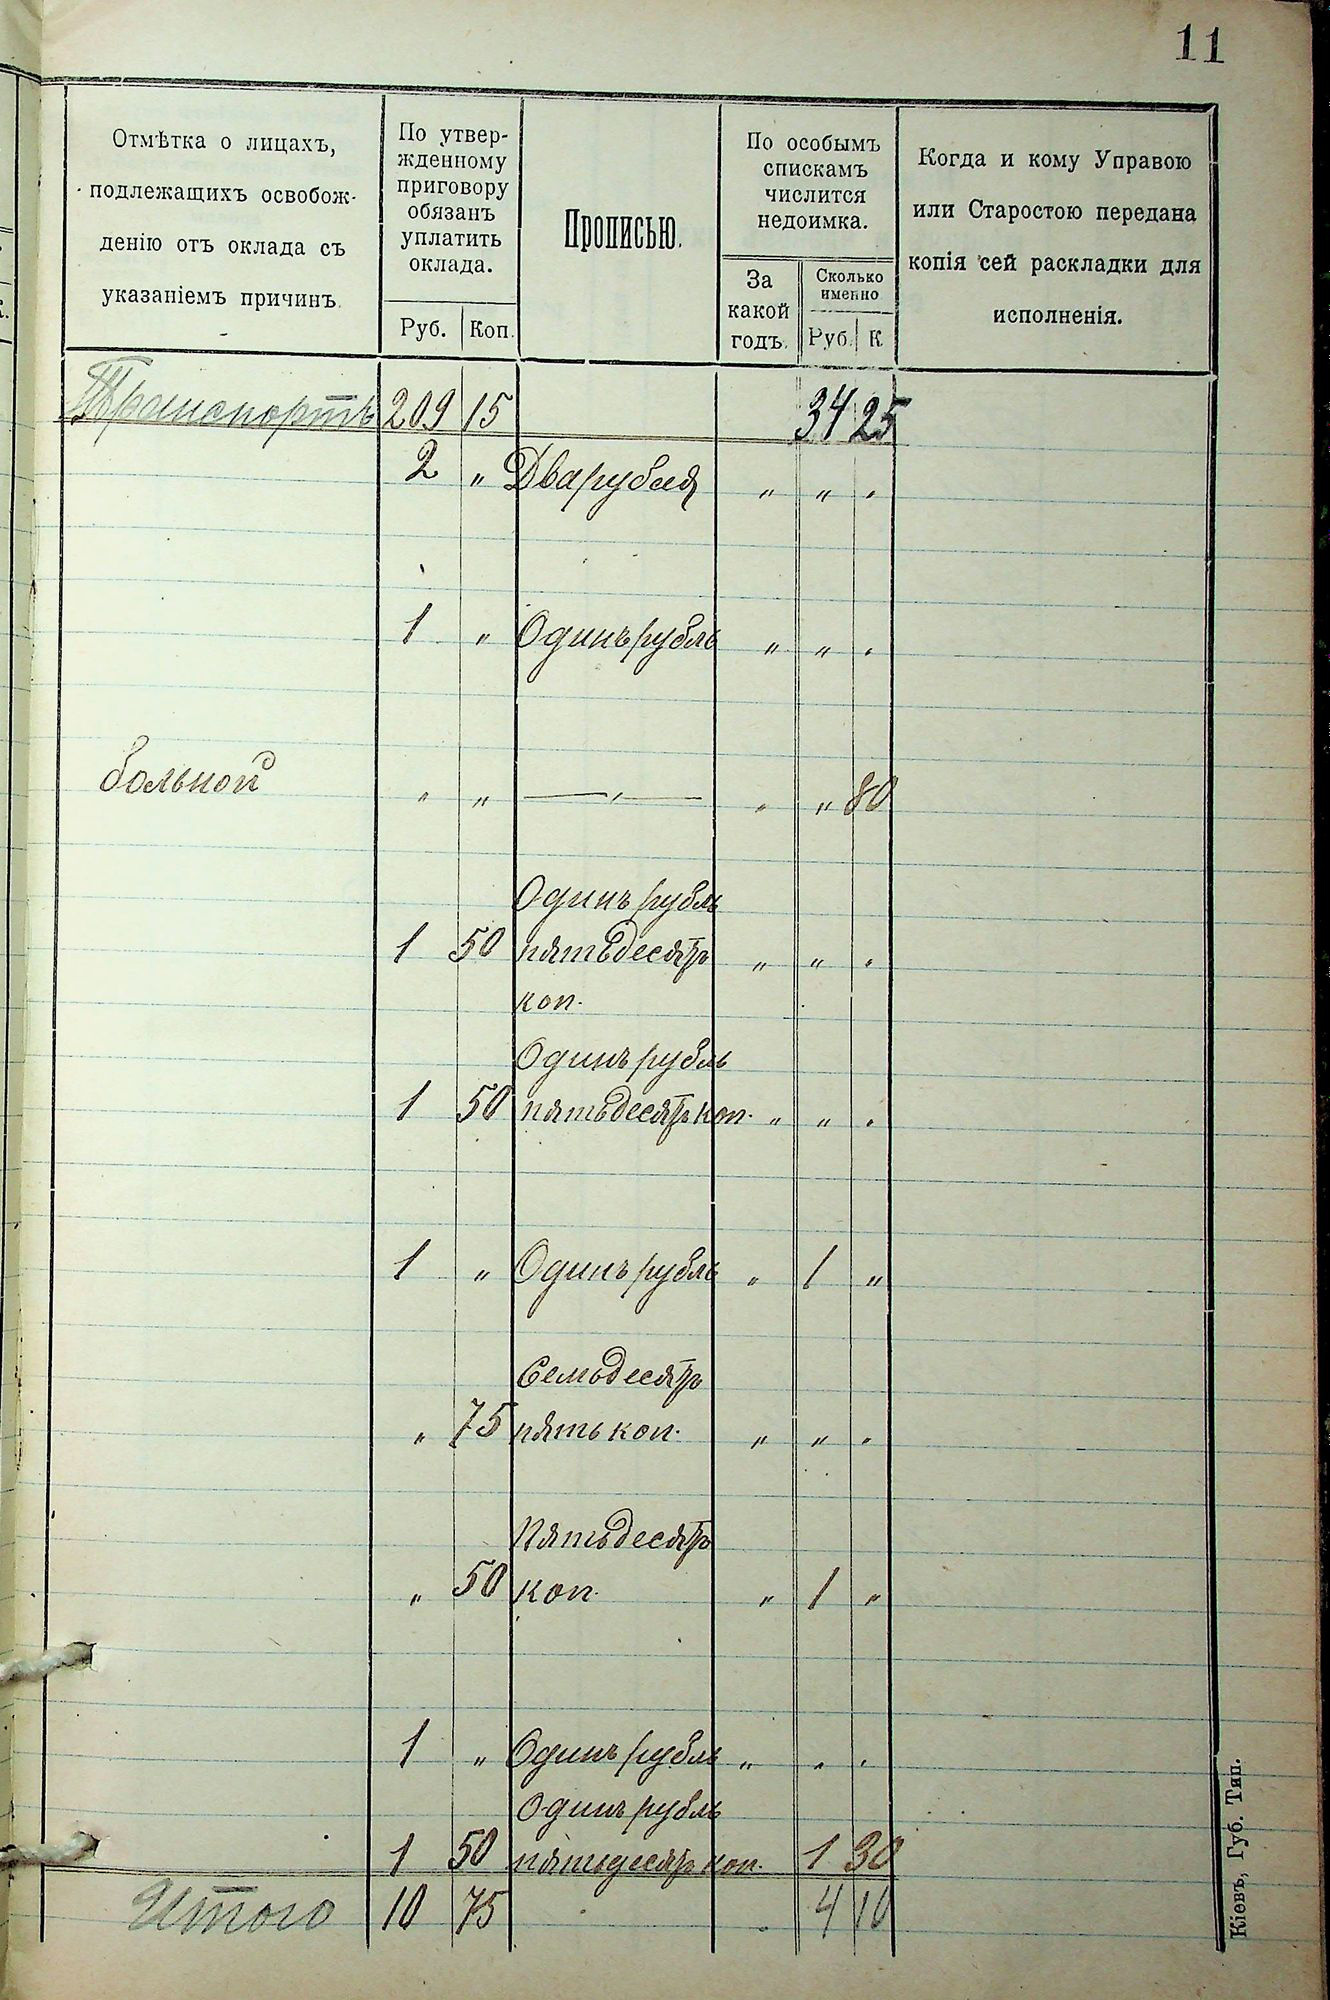 11
Отмѣтка о лицахъ,
подлежащихъ освобож-
денію отъ оклада съ
указаніемъ причинъ.
По утвер-
жденному
приговору
обязанъ
уплатить
оклада.
Руб. Коп.
Прописью.
По особымъ
спискамъ
числится
недоимка.
За
какой
годъ.
Сколько
именно
Руб. К
Когда и кому Управою
или Старостою передана
копія сей раскладки для
исполненія.
Транспортъ 209 15 34 25
2 " Два рубля " " "
1 " Одинъ рубль " " "
больной " " —"— " " 80
Одинъ рубль
1 50 пятьдесятъ " " "
коп.
Одинъ рубль
1 50 пятьдесятъ коп. " " "
1 " Одинъ рубль " 1 "
Семьдесятъ
" 75 пять коп. " " "
Пятьдесятъ
" 50 коп. " 1 "
1 " Одинъ рубль " " "
Одинъ рубль
1 50 пятьдесятъ коп. 1 30
Итого 10 75 4 10
Кіевъ, Губ. Тип.